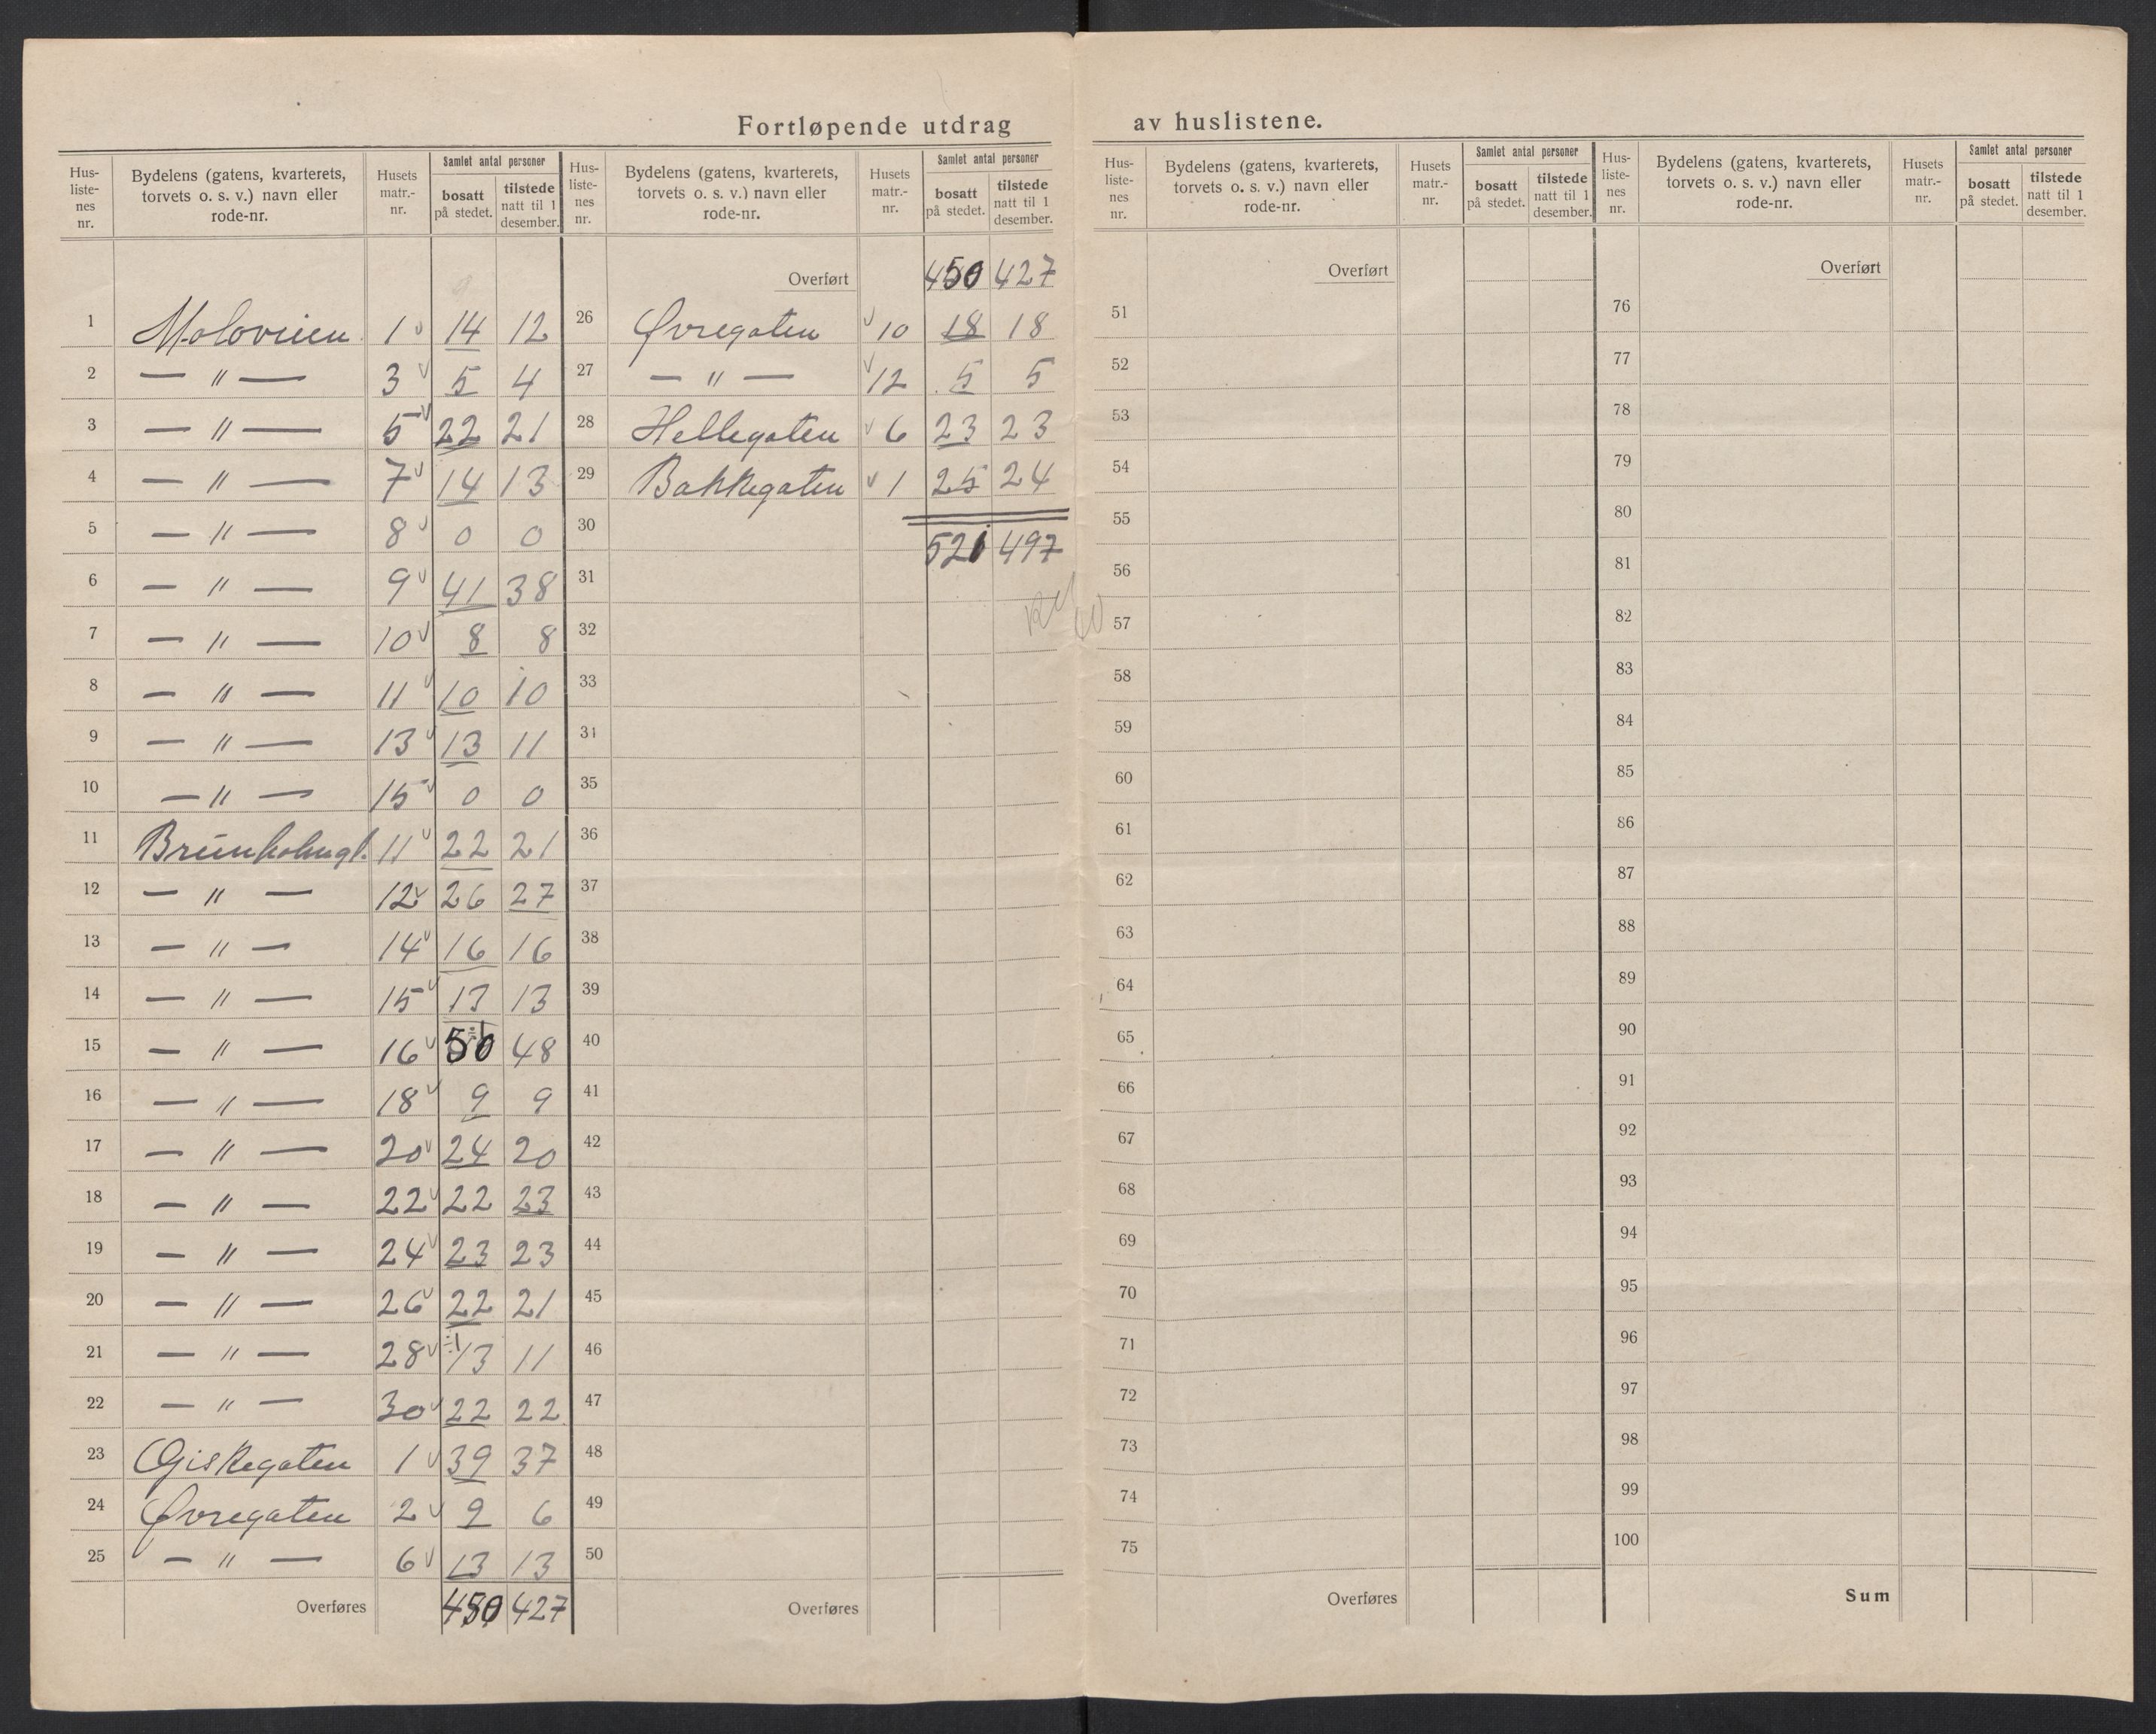 Fortløpende utdrag av huslistene.
Hus-liste-nes nr. | Bydelens (gatens, kvarterets, torvets o. s. v.) navn eller rode-nr. | Husets matr.-nr. | Samlet antal personer bosatt på stedet. | tilstede natt til 1 desember.
1 Moloveien 1 v 14 12
2 — " — 3 v 5 4
3 — " — 5 v 22 21
4 — " — 7 v 14 13
5 — " — 8 v 0 0
6 — " — 9 v 41 38
7 — " — 10 v 8 8
8 — " — 11 v 10 10
9 — " — 13 v 13 11
10 — " — 15 v 0 0
11 Brunholmgt. 11 v 22 21
12 — " — 12 v 26 27
13 — " — 14 v 16 16
14 — " — 15 v 13 13
15 — " — 16 v 50 48
16 — " — 18 v 9 9
17 — " — 20 v 24 20
18 — " — 22 v 22 23
19 — " — 24 v 23 23
20 — " — 26 v 22 21
21 — " — 28 v ÷1 13 11
22 — " — 30 v 22 22
23 Giskegaten 1 v 39 37
24 Øvregaten 2 v 9 6
25 — " — 6 v 13 13
Overføres 450 427
Hus-liste-nes nr. | Bydelens (gatens, kvarterets, torvets o. s. v.) navn eller rode-nr. | Husets matr.-nr. | Samlet antal personer bosatt på stedet. | tilstede natt til 1 desember.
Overført 450 427
26 Øvregaten v 10 18 18
27 — " — v 12 5 5
28 Hellegaten v 6 23 23
29 Bakkegaten v 1 25 24
30 521 497
31
32
33
34
35
36
37
38
39
40
41
42
43
44
45
46
47
48
49
50
Overføres
Hus-liste-nes nr. | Bydelens (gatens, kvarterets, torvets o. s. v.) navn eller rode-nr. | Husets matr.-nr. | Samlet antal personer bosatt på stedet. | tilstede natt til 1 desember.
Overført
51
52
53
54
55
56
57
58
59
60
61
62
63
64
65
66
67
68
69
70
71
72
73
74
75
Overføres
Hus-liste-nes nr. | Bydelens (gatens, kvarterets, torvets o. s. v.) navn eller rode-nr. | Husets matr.-nr. | Samlet antal personer bosatt på stedet. | tilstede natt til 1 desember.
Overført
76
77
78
79
80
81
82
83
84
85
86
87
88
89
90
91
92
93
94
95
96
97
98
99
100
Sum